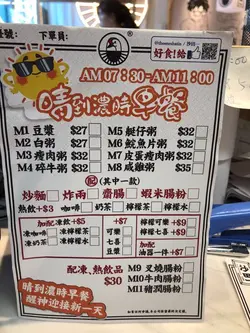 下單員:
好食!給
AM07:30-AM11:00
晴到濃時早餐
M1 豆漿 $27
M5 艇仔粥 $32
M2 白粥 $27
M6 鯇魚片粥 $32
M3 瘦肉粥 $32
M7 皮蛋瘦肉粥 $32
M4 碎牛粥 $32
M8 咸雞粥 $35
配(其中一款)
炒麵 炸兩 齋腸 蝦米腸粉
熱飲+$3 咖啡 奶茶 檸茶 檸水
加配 凍飲+$5 +$7 檸檬可樂 +$9
凍咖啡 凍檸茶 可樂 檸檬七喜 +$9
凍奶茶 凍檸水 七喜 加配
豆漿 油器一件 +$7
配凍、熱飲品
$30
M9 叉燒腸粉
M10 牛肉腸粉
M11 豬潤腸粉
晴到濃時早餐
醒神迎接新一天